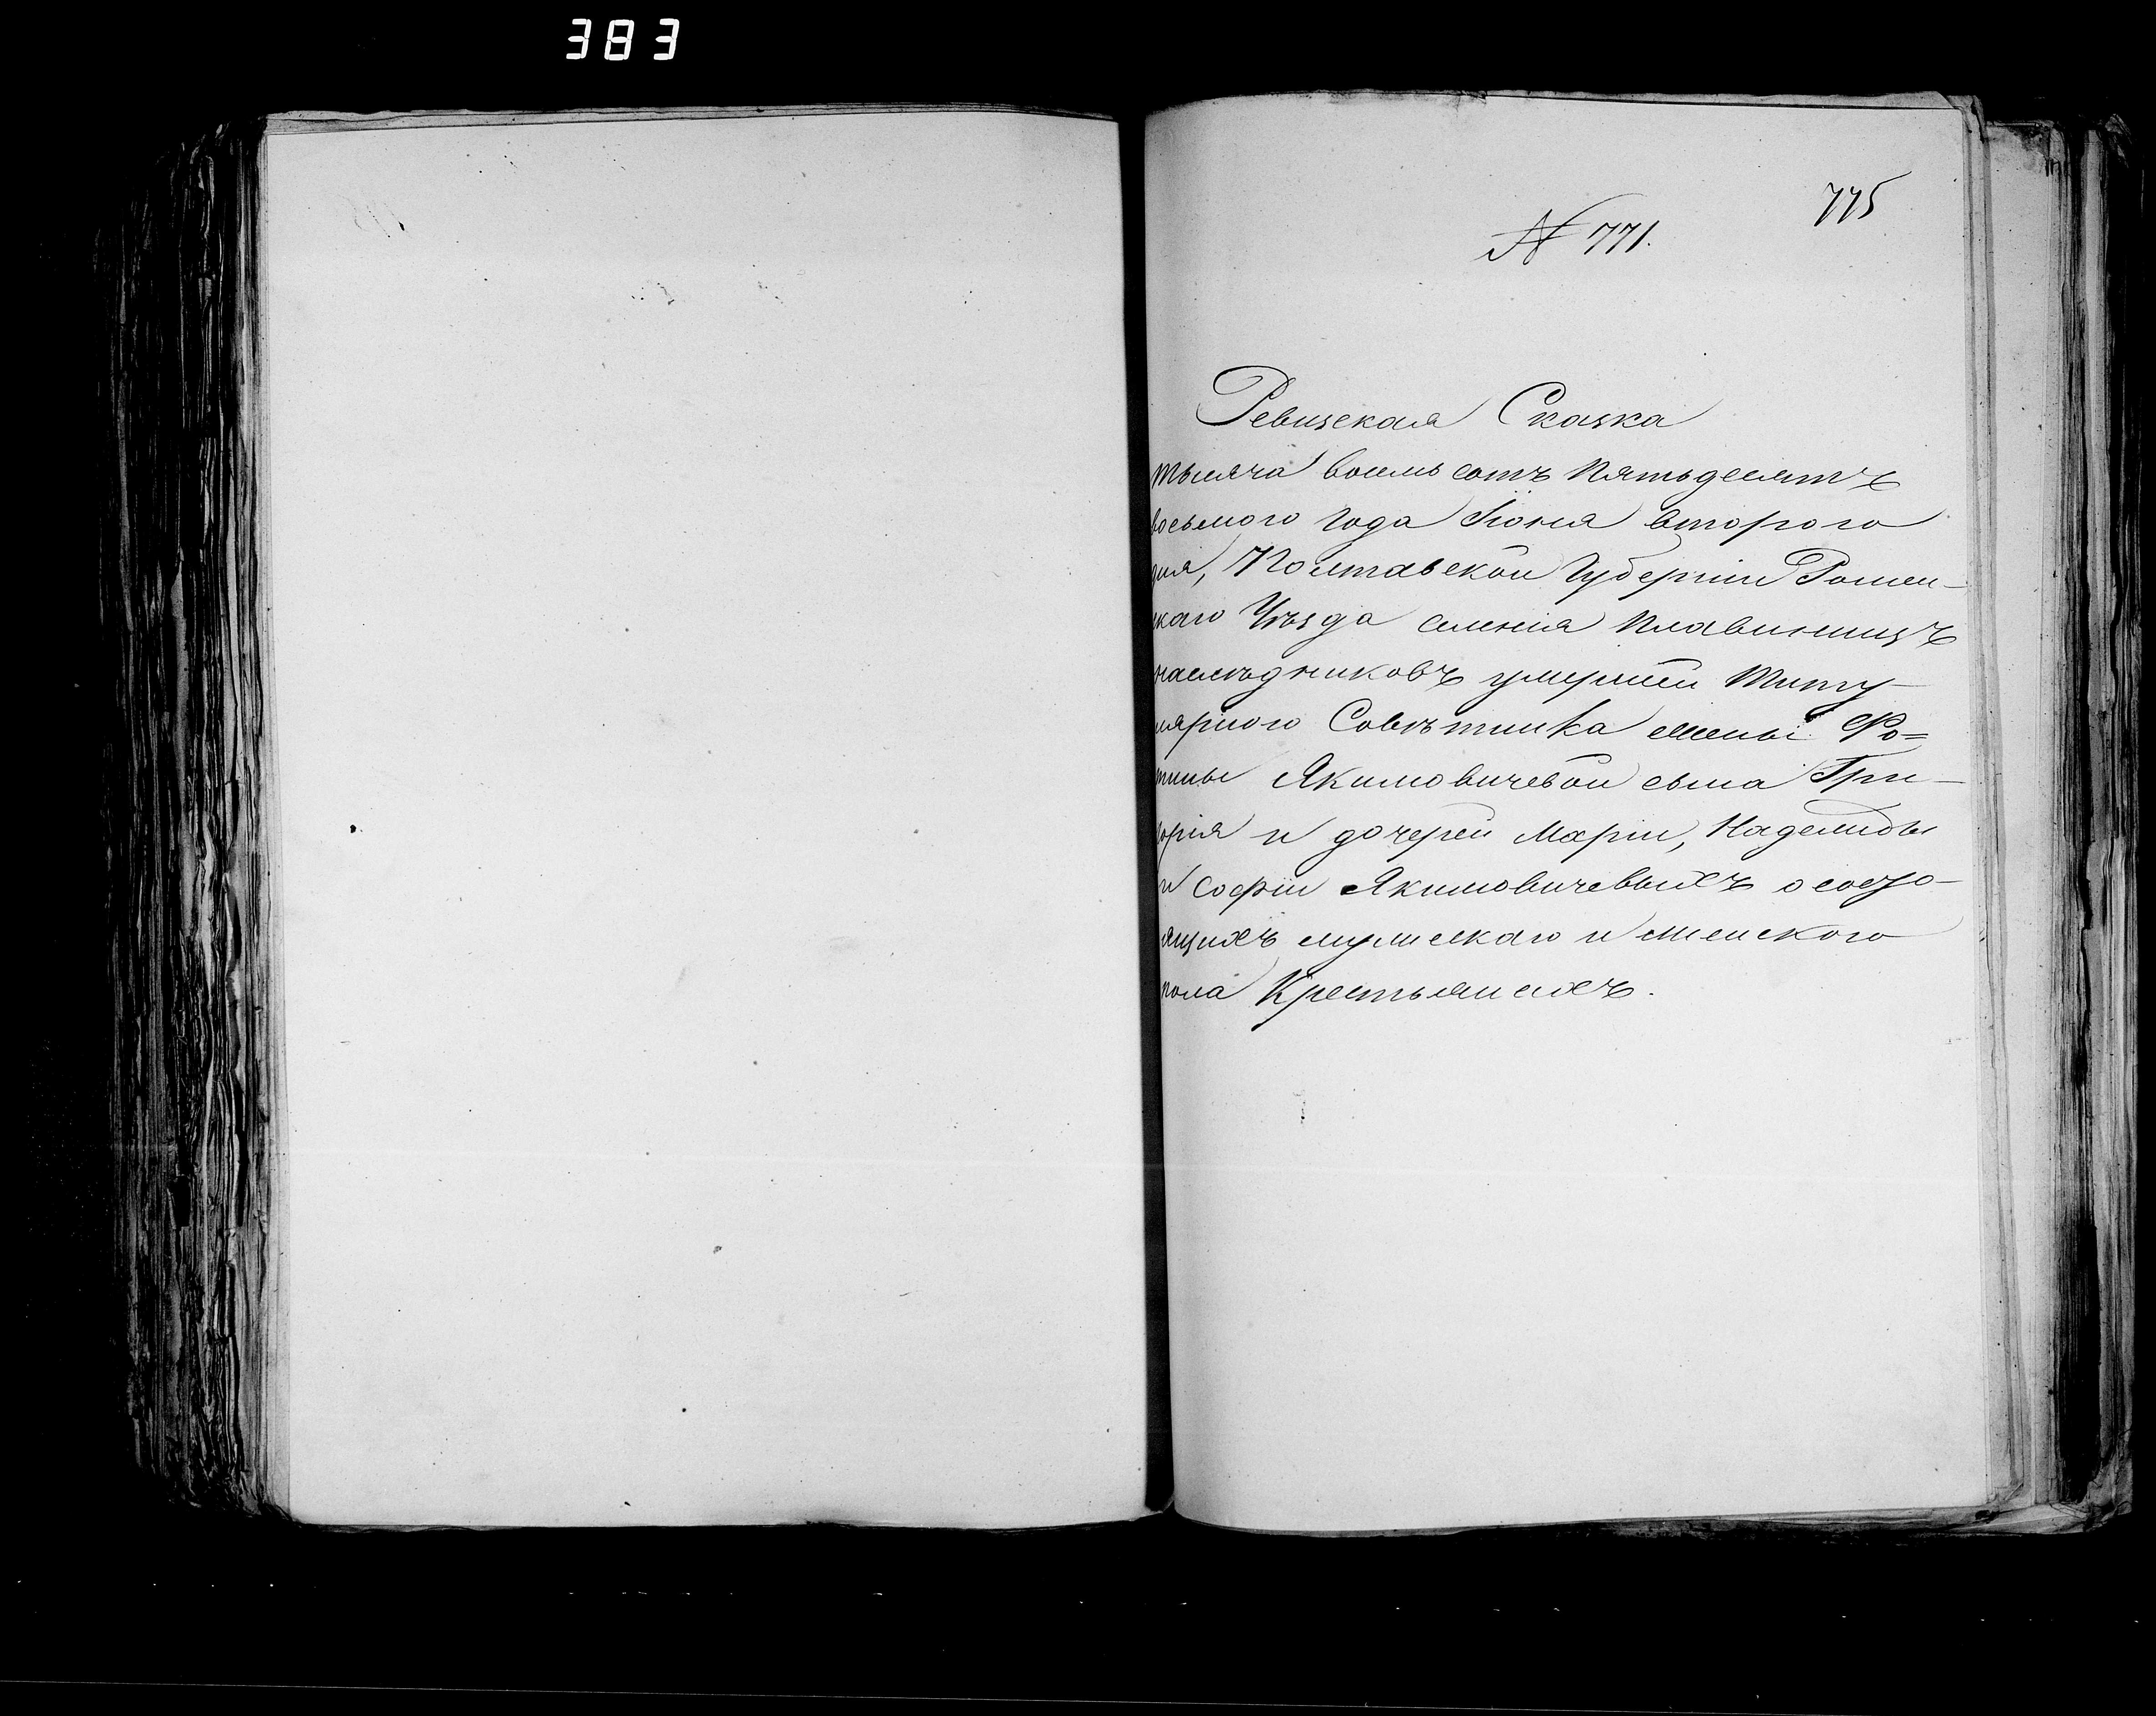 383
775
№ 771.
Ревизская Сказка
тысяча восемь сотъ пятьдесятъ
восьмого года Іюня второго
дня, Полтавской Губерніи Ромен-
скаго Уѣзда селенія Плавинищъ
наслѣдниковъ умершей Титу-
лярного Совѣтника жены Фо=
тины Якимовичевой сына Гри-
горія и дочерей Маріи, Надежды
и Софіи Якимовичевыхъ о состо-
ящихъ мужескаго и женского
пола Крестьянехъ.